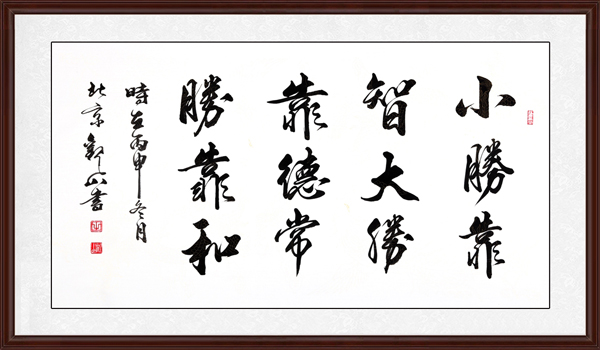 小勝靠
智大勝
靠德常
勝靠和
時在丙申冬月
北京觀山書